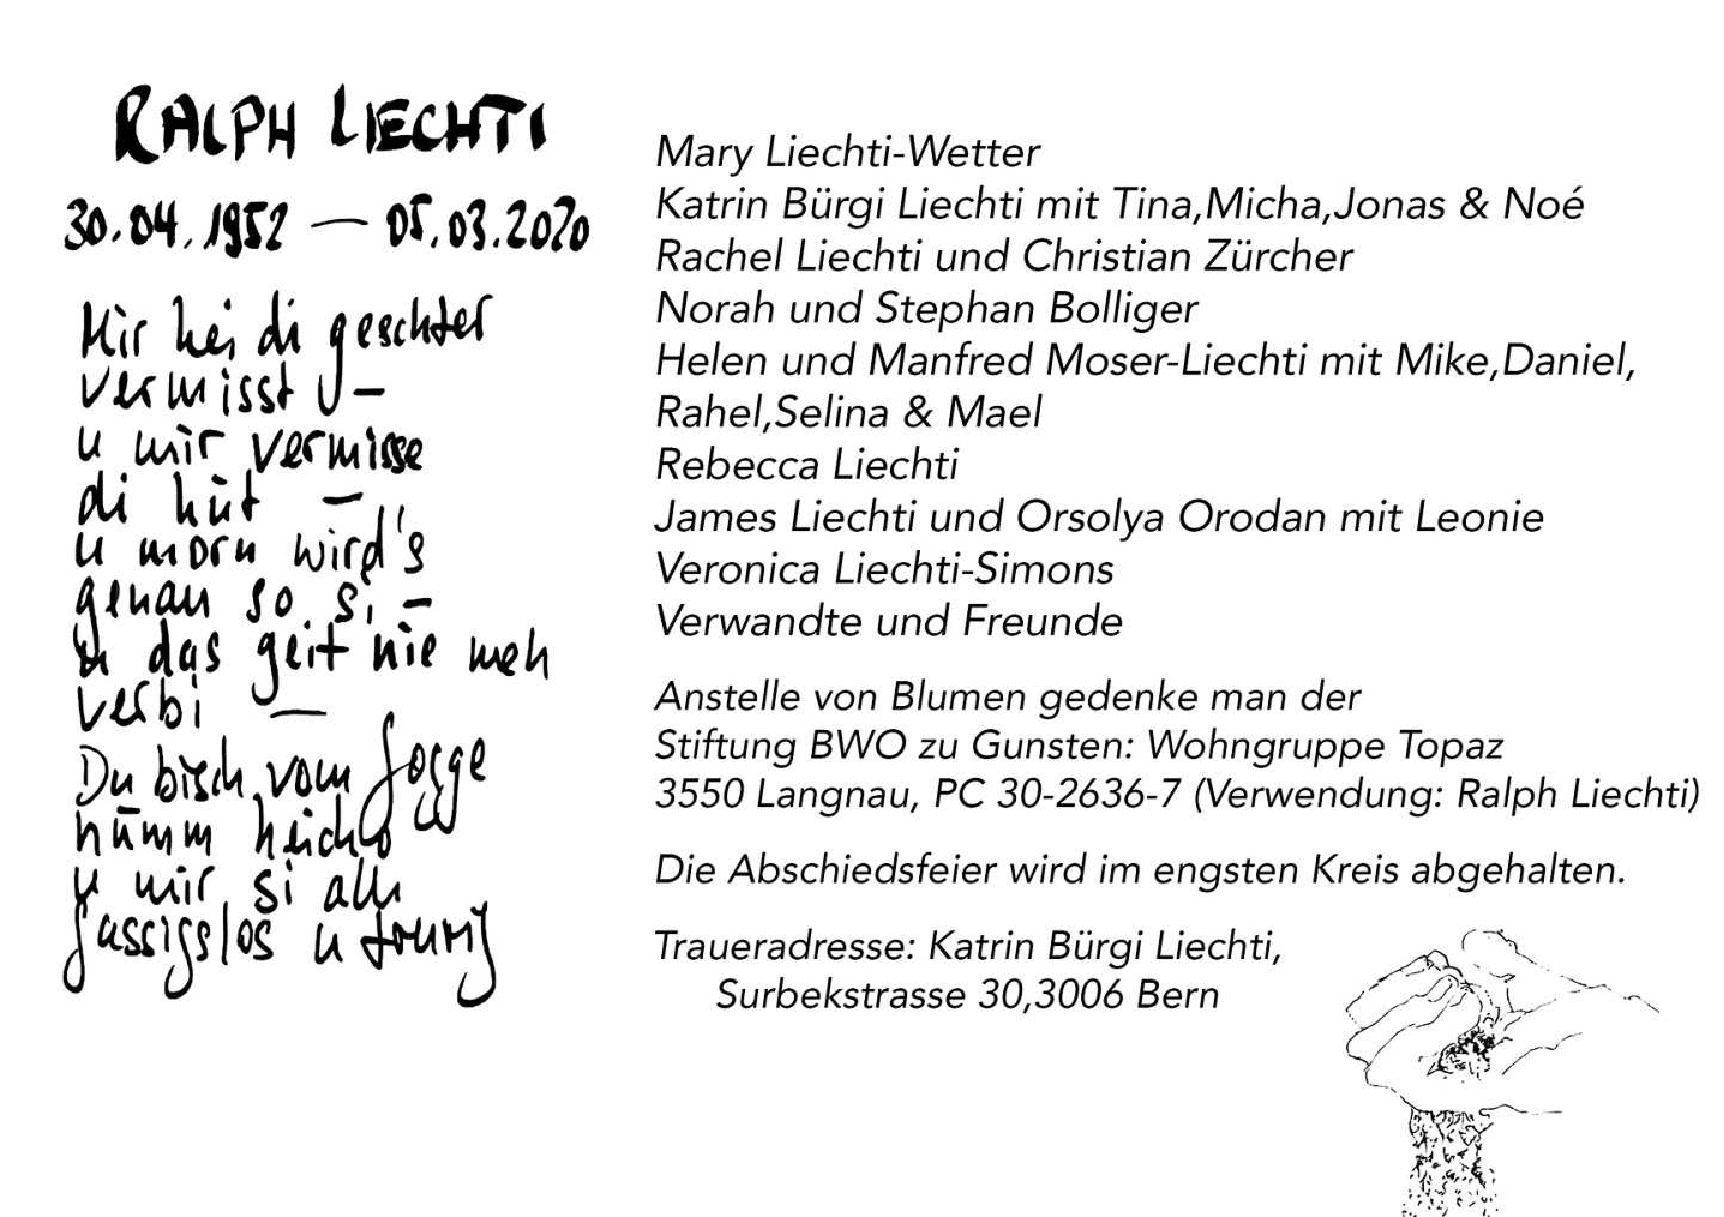 RALPH LIECHTI
30.04.1952 — 05.03.2020
Mir hei di geschter
vermisst —
u mir vermisse
di hüt —
u morn wird's
genau so si —
u das geit nie meh
verbi —
Du bisch vom Jogge
nümm heicho
u mir si alli
fassigslos u truurig
Mary Liechti-Wetter
Katrin Bürgi Liechti mit Tina,Micha,Jonas & Noé
Rachel Liechti und Christian Zürcher
Norah und Stephan Bolliger
Helen und Manfred Moser-Liechti mit Mike,Daniel,
Rahel,Selina & Mael
Rebecca Liechti
James Liechti und Orsolya Orodan mit Leonie
Veronica Liechti-Simons
Verwandte und Freunde
Anstelle von Blumen gedenke man der
Stiftung BWO zu Gunsten: Wohngruppe Topaz
3550 Langnau, PC 30-2636-7 (Verwendung: Ralph Liechti)
Die Abschiedsfeier wird im engsten Kreis abgehalten.
Traueradresse: Katrin Bürgi Liechti,
Surbekstrasse 30,3006 Bern